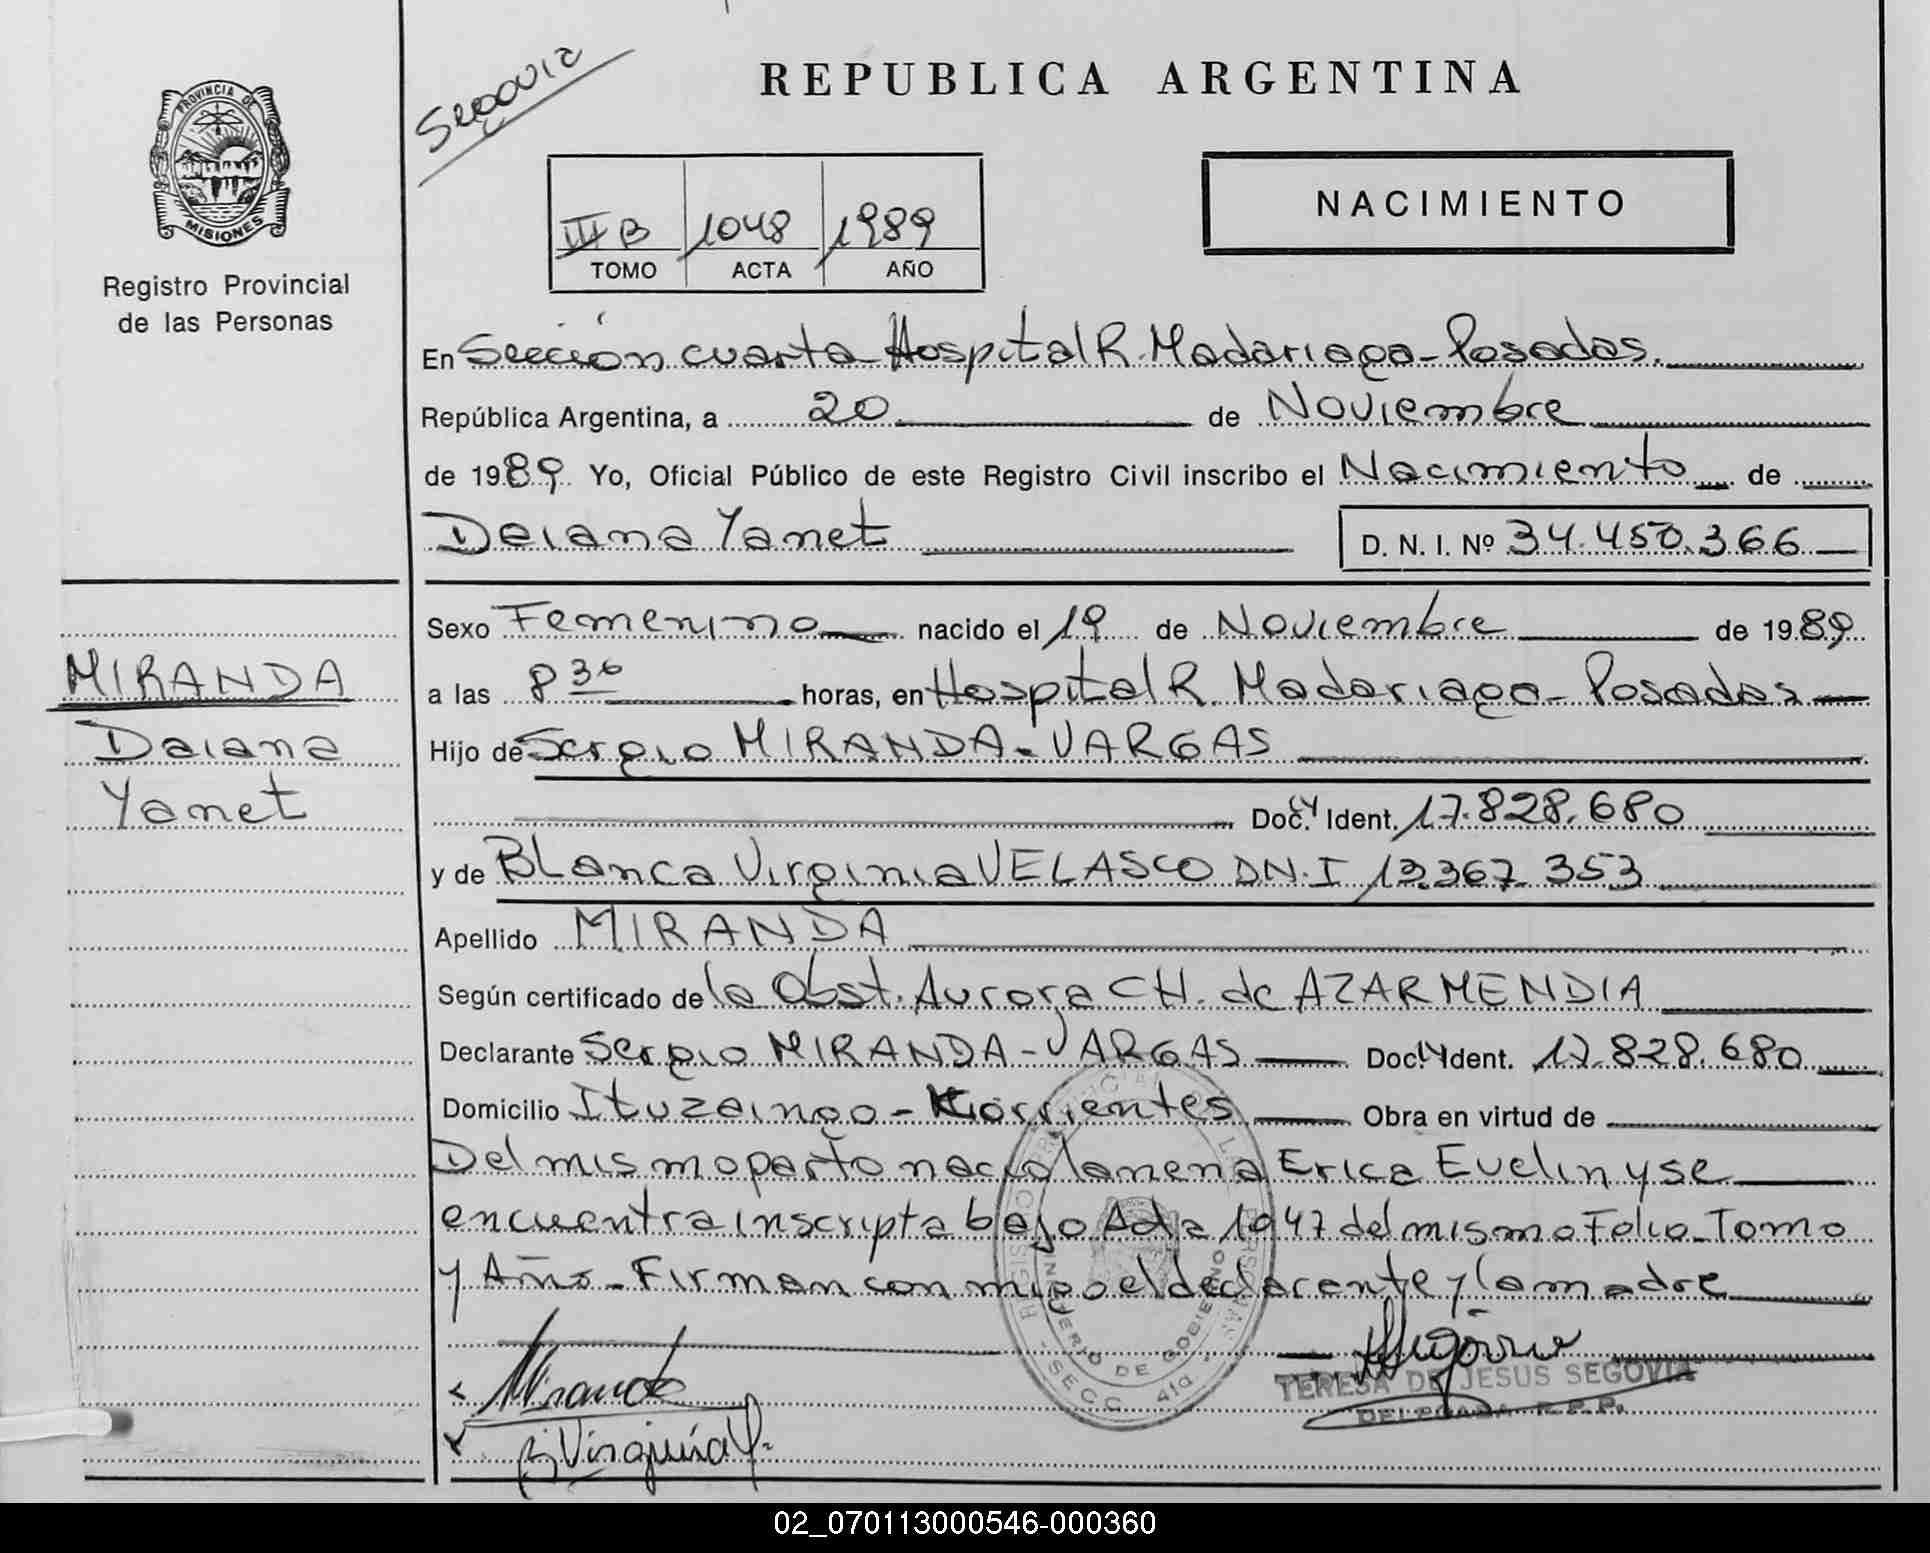 Segovia
REPUBLICA ARGENTINA
PROVINCIA DE
MISIONES
Registro Provincial
de las Personas
NACIMIENTO
III B 1048 1989
TOMO ACTA AÑO
En Sección cuarta-Hospital R. Madariaga-Posadas.
República Argentina, a 20 de Noviembre
de 1989 Yo, Oficial Público de este Registro Civil inscribo el Nacimiento de
Daiana Yanet D. N. I. Nº 34.450.366
MIRANDA
Daiana
Yanet
Sexo Femenino nacido el 19 de Noviembre de 1989
a las 8 36 horas, en Hospital R. Madariaga-Posadas
Hijo de Sergio MIRANDA-VARGAS
Doc. Ident. 17.828.680
y de Blanca Virginia VELASCO DN.I 13.367.353
Apellido MIRANDA
Según certificado de la Obst. Aurora CH. de AZARMENDIA
Declarante Sergio MIRANDA-VARGAS Doc. Ident. 17.828.680
Domicilio Ituzaingo-Corrientes Obra en virtud de
Del mismo parto nacio la nena Erica Evelin y se
encuentra inscripta bajo Acta 1047 del mismo Folio-Tomo
y Año-Firman con migo el declarante y la madre
Miranda
B Virginia V.
SECC. 4ta
MINISTERIO DE GOBIERNO
TERESA DE JESUS SEGOVIA
DELEGADA R.P.P.
02_070113000546-000360